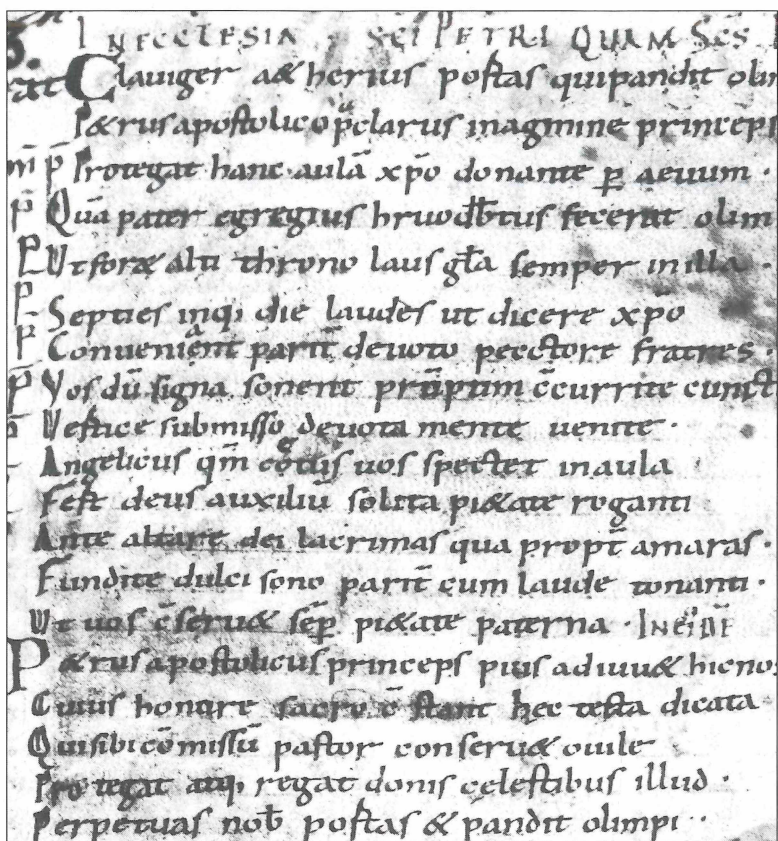 IN ECCLESIA SCI PETRI QUAM SCS
Claviger aetherius postas qui pandit olim
Petrus apostolico p̄clarus in agmine princeps
Protegat hanc aulā xp̄o donante p̱ aevum ·
Quā pater egregius hruodb̄tus fecerat olim
Ut foret alti throno laus gl̄a semper in illa ·
Septies inq; die laudes ut dicere xp̄o
Conveniant parit̄ devoto pecctore fratres ·
Vos dū signa sonent c̄currite cunct
Vertice submisso devota mente venite ·
Angelicus qm̄ cętus vos spectet in aula
Fert deus auxiliū solita pietate roganti
Ante altare dei lacrimas qua propt̄ amaras ·
Fundite dulci sono parit̄ cum laude tonanti ·
Ut vos c̄servet sēp pietate paterna · IN EIDĒ
Petrus apostolicus princeps pius adiuvet hic nos
Cuius honore sacro c̄stant hęc testa dicata
Qui sibi cōmissū pastor conservet ovile
Protegat atq; regat donis celestibus illud ·
Perpetuas nob̄ postas & pandit olimpi ·